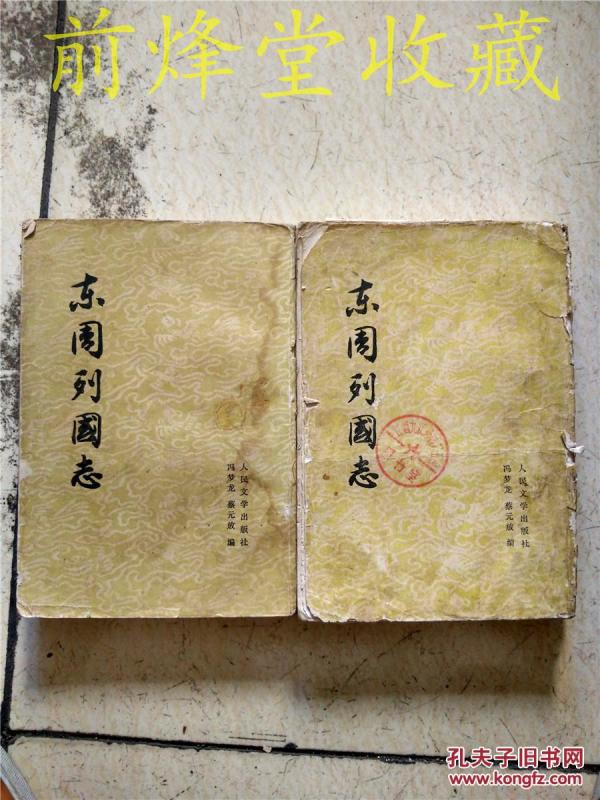 前烽堂收藏
东周列國志
冯梦龙 蔡元放 编
人民文学出版社
东周列國志
冯梦龙 蔡元放 编
人民文学出版社
孔夫子旧书网
www.kongfz.com